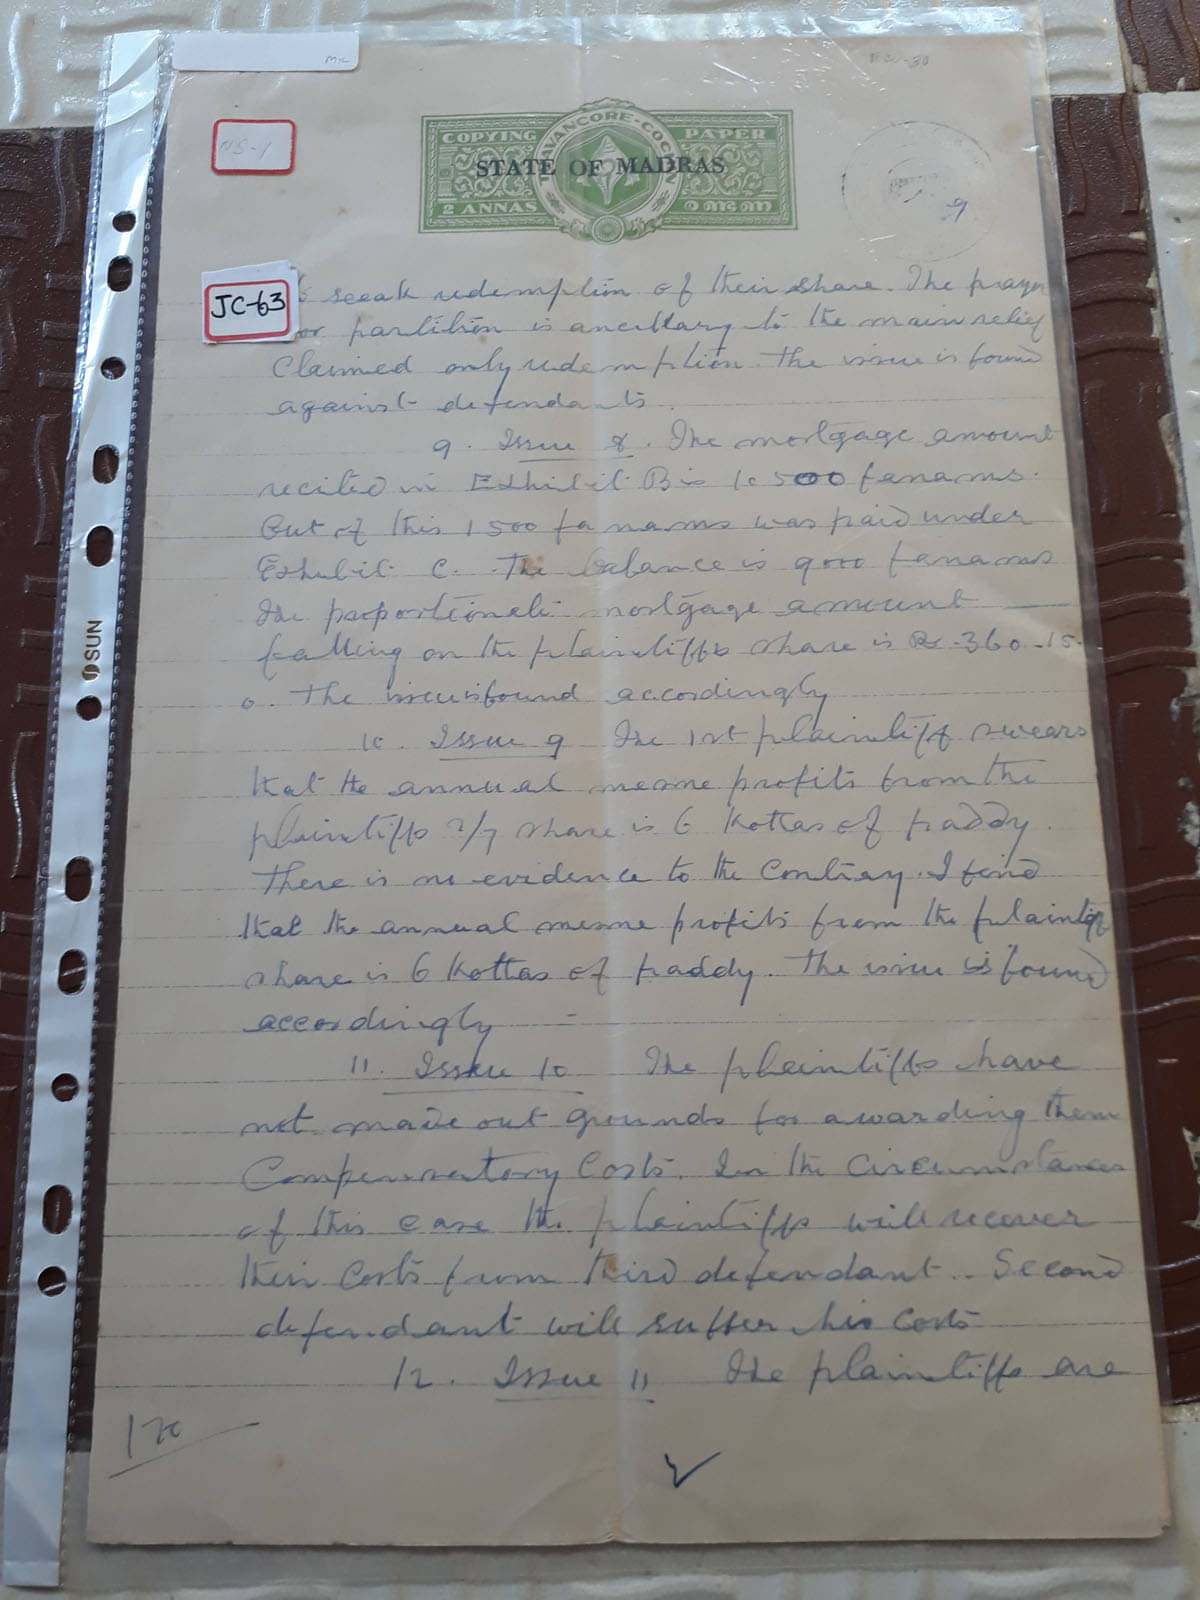 NS-1
9
COPYING PAPER
TRAVANCORE-COCHIN
STATE OF MADRAS
2 ANNAS
JC-63
to seeak redemption of their share. The prayer
for partition is ancillary to the main relief
claimed only redemption. The issue is found
against defendants.
9. Issue 8. The mortgage amount
recited in Exhibit B is 10500 fanams.
Out of this 1500 fanams was paid under
Exhibit C. The balance is 9000 fanams
The proportionate mortgage amount
falling on the plaintiffs share is Rs. 360-15-
0. The issue is found accordingly
10. Issue 9 The 1st plaintiff swears
that the annual mesne profits from the
plaintiffs 2/7 share is 6 Kottas of paddy.
There is no evidence to the contrary. I find
that the annual mesne profits from the plaintiffs
share is 6 Kottas of paddy. The issue is found
accordingly -
11. Issue 10 The plaintiffs have
not made out grounds for awarding them
Compensatory Costs. In the circumstances
of this case the plaintiffs will recover
their costs from third defendant.. Second
defendant will suffer his costs
12. Issue 11 The plaintiffs are
170
SUN